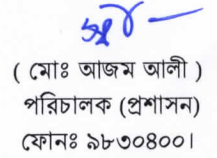 ( মোঃ আজম আলী )
পরিচালক (প্রশাসন)
ফোনঃ ৯৮৩০৪০০।